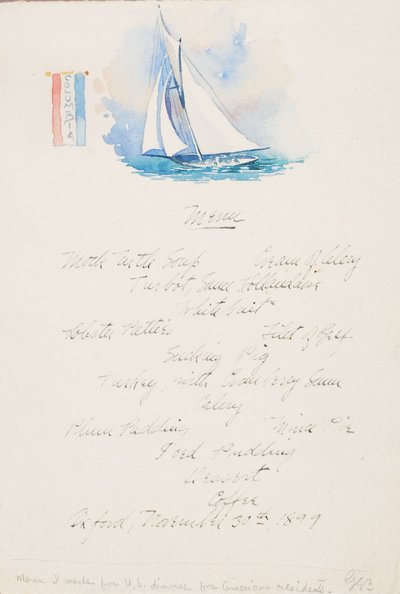 COLUMBIA
Menu
Mock Turtle Soup Cream of Celery
Turbot, Sauce Hollandaise
White bait
Lobster Patties Filet of Beef
Sucking Pig
Turkey, with Cranberry Sauce
Celery
Plum Pudding Mince Pie
Iced Pudding
Dessert
Coffee
Oxford, November 30th, 1899
Menu I made for U.S. dinner for American residents.